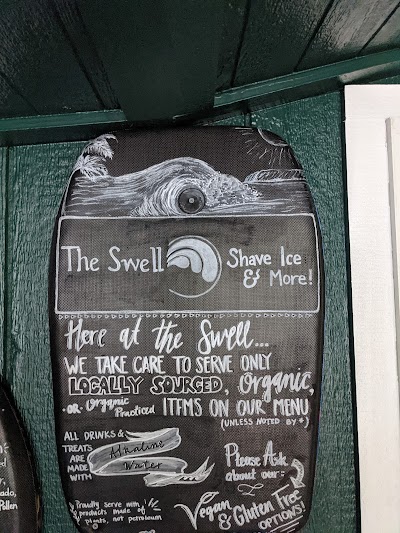 The Swell Shave Ice
& More!
Here at the Swell...
WE TAKE CARE TO SERVE ONLY
LOCALLY SOURCED, Organic,
-OR- Organic Practiced ITEMS ON OUR MENU
(UNLESS NOTED BY *)
ALL DRINKS &
TREATS
ARE
MADE
WITH
Alkaline
Water
Please Ask
about our:
Vegan
& Gluten Free
OPTIONS!
Proudly serve with
products made of
plants, not petroleum
Pollen